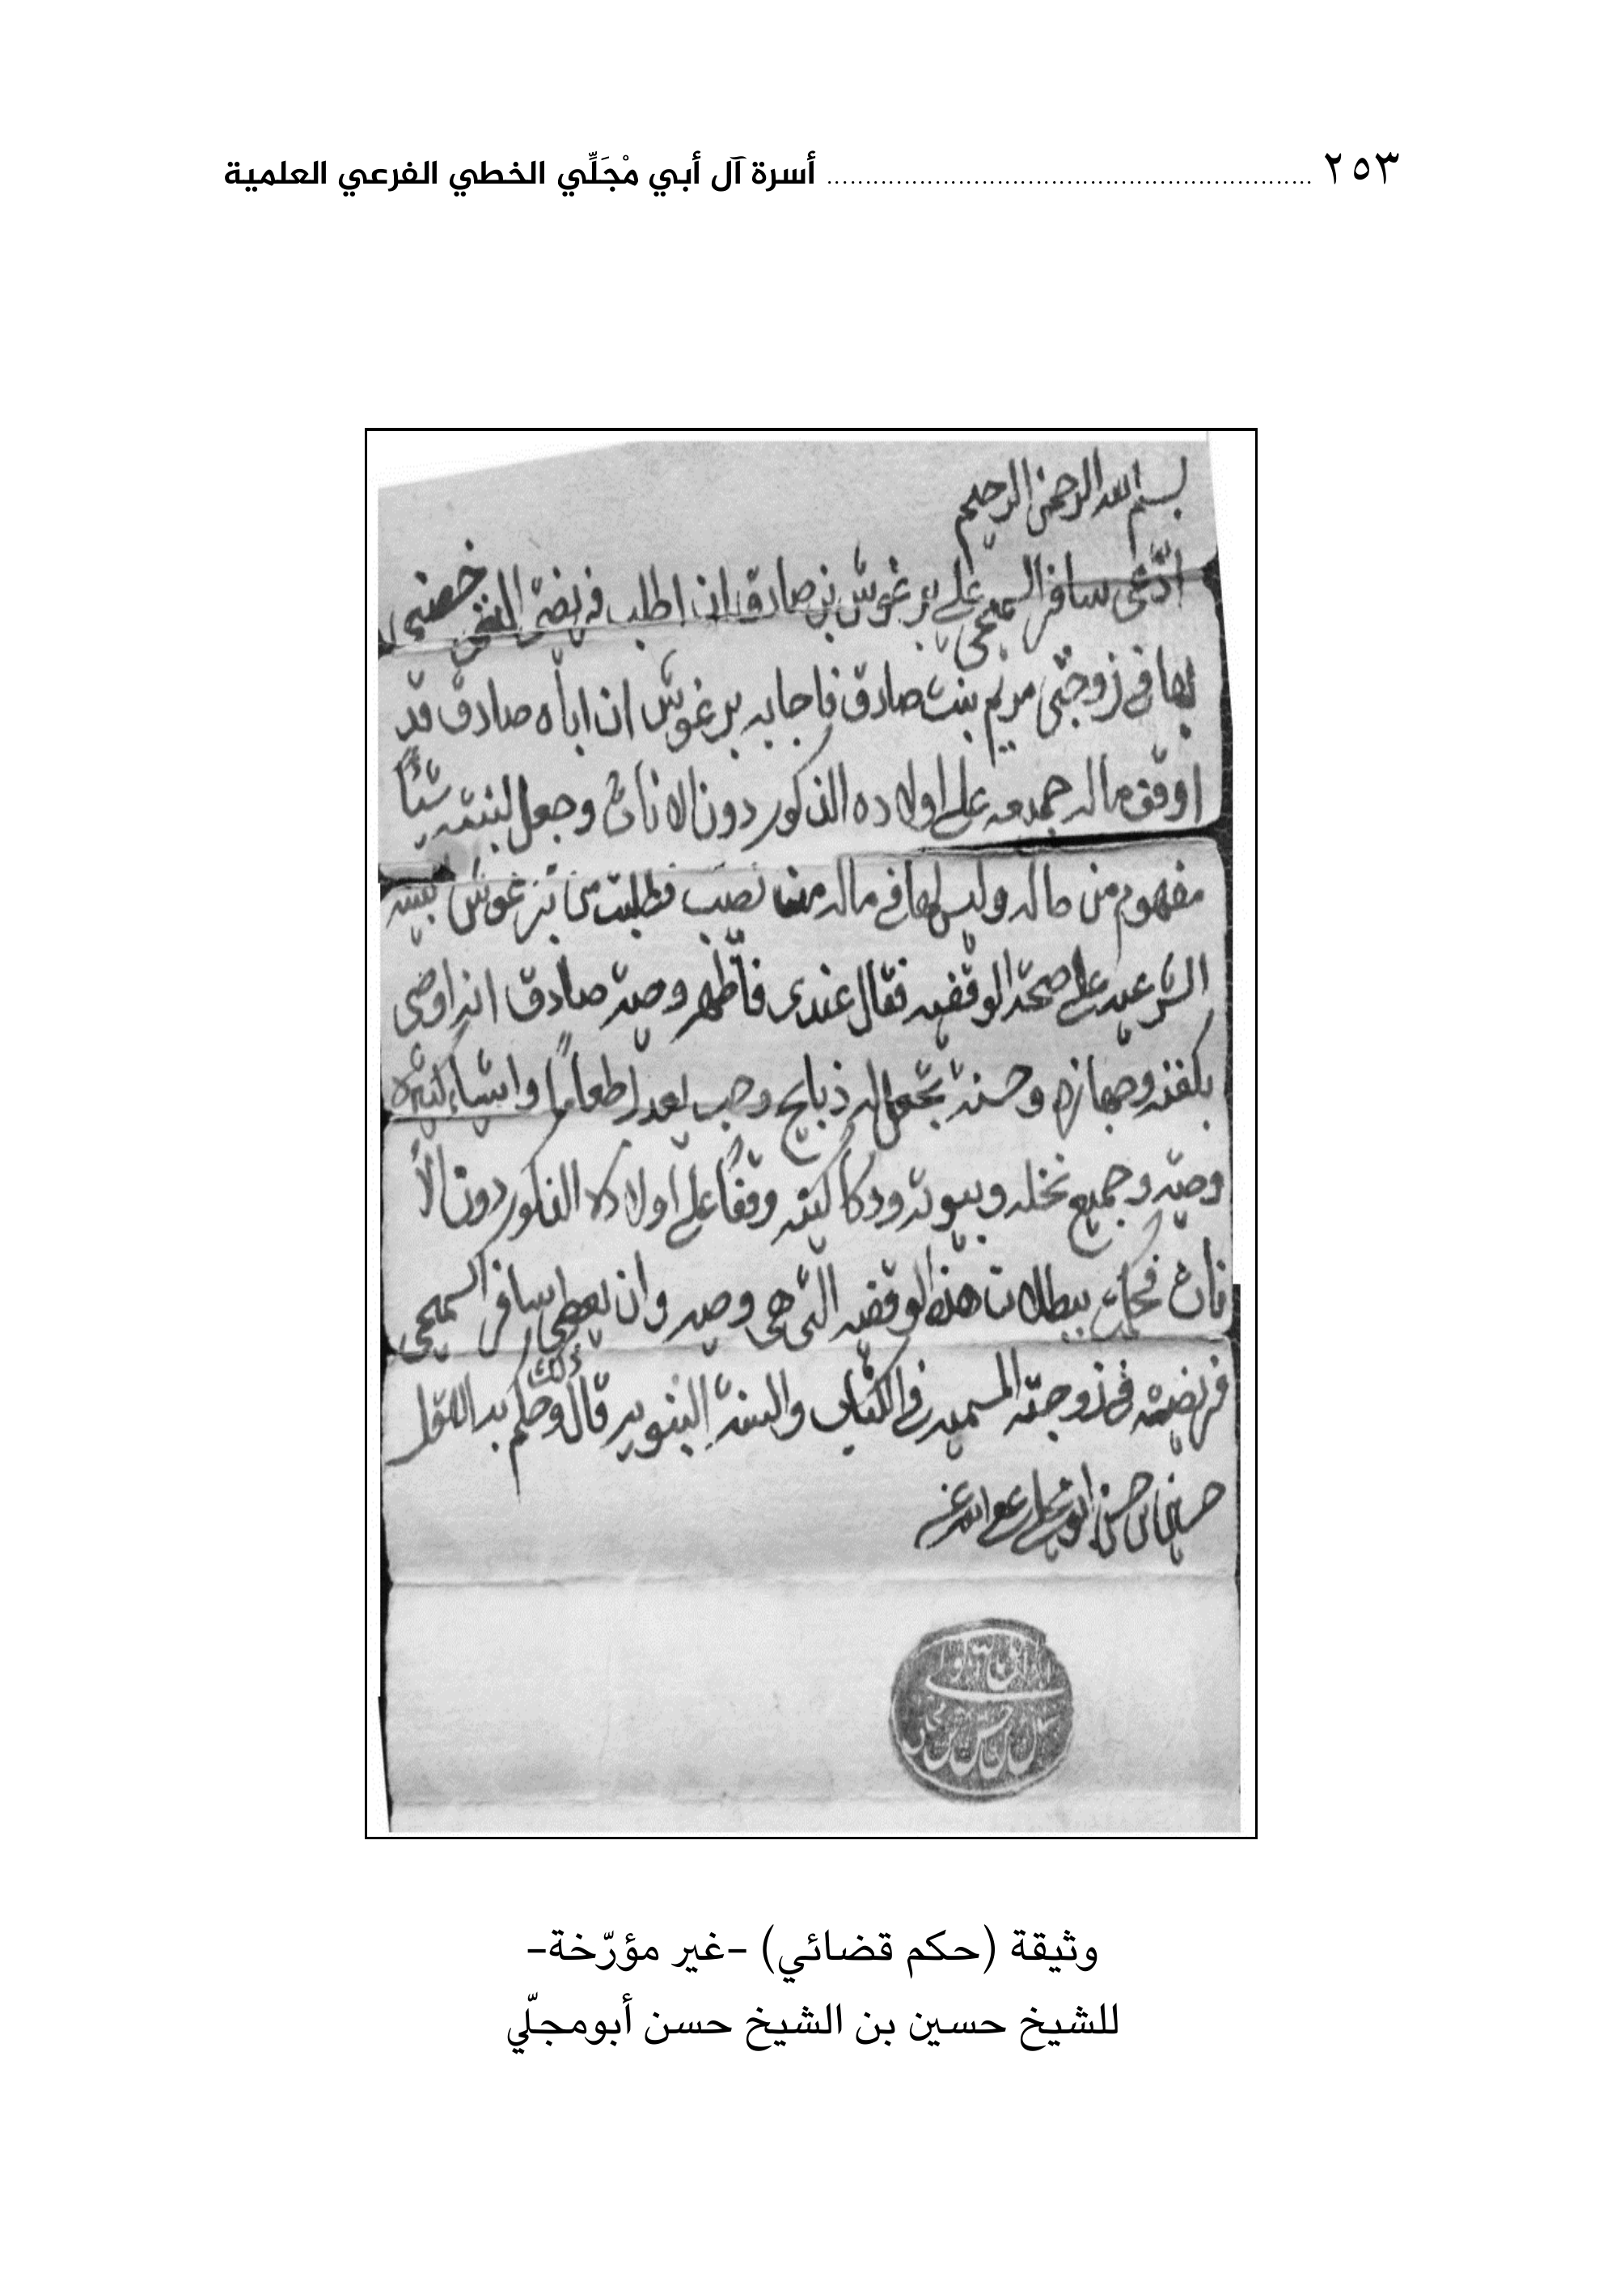 ٢٥٣ ........ أسرة آل أبي مْجَلِّي الخطي الفرعي العلمية
بسم الله الرحمن الرحيم
ادّعى سافر السميحي على برغوش بن صادق ان اطلب فريضتي التي خصني
بها في زوجتي مريم بنت صادق فاجابه برغوش ان اباه صادق قد
اوقف ماله جميعه على اولاده الذكور دون الاناث وجعل لبنته شيئًا
مفهوم من ماله وليس لها في ماله نصيب فطلبت من برغوش بينه
الشرعيه على صحة الوقفيه فقال عندي فأظهر وصية صادق انه اوصى
بكفنه وجهازه وحسنة تجعل له ذبايح وحب بعد طعامًا واشياء كثيره
وصيه وجميع نخله وبيوته ودكاكينه وقفًا على اولاده الذكور دون الأ
ناث فحكمت ببطلان هذه الوقفيه التي هي وصيه وان يعطى سافر السميحي
فريضته في زوجته المسميه في الكتاب والسنة النبويه قال ذلك وحكم به الاقل
حسين بن حسن ابو مجلي عفى الله عنه
وثيقة (حكم قضائي) -غير مؤرّخة-
للشيخ حسين بن الشيخ حسن أبومجلّي